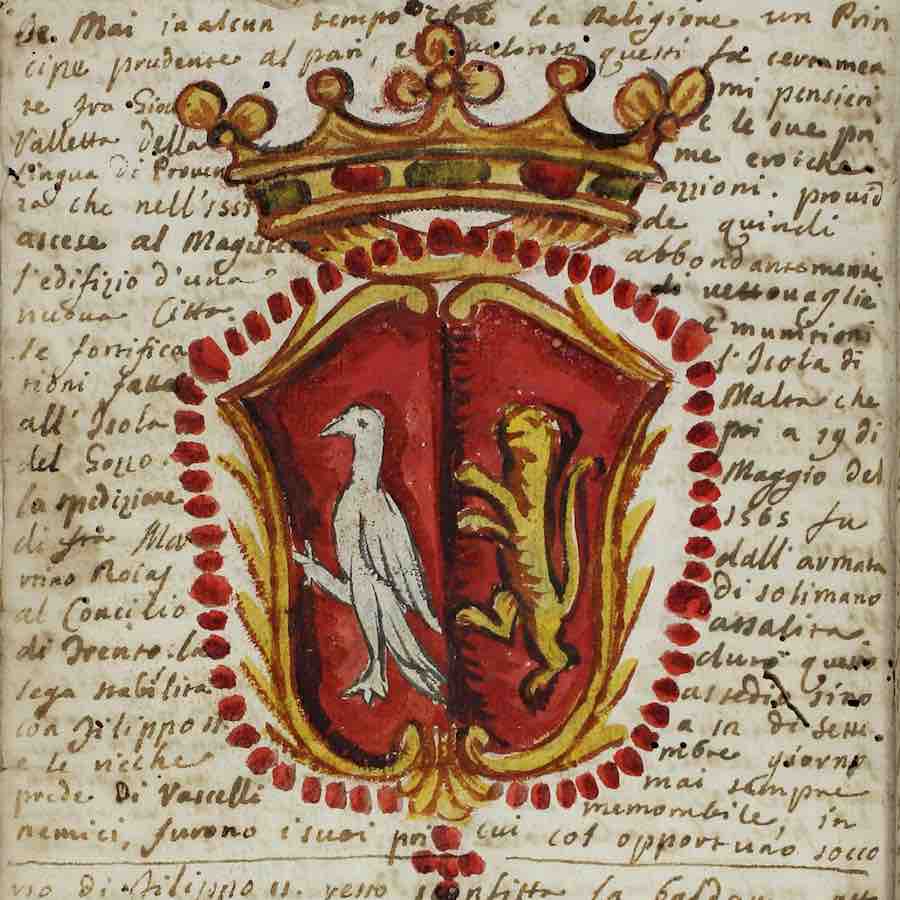 se. Mai in alcun tempo ebbe la Religione un Prin
cipe prudente al pari, e valoroso questi fu certamen
te Fra Giov
Valletta Della
Lingua di Proven
za che nell'155
ascese al Magistero
l'edifizio d'una
nuova Citta
le fortifica
tioni fatte
all' Isola
del Gozzo
la spedizione
di fra Mar
tino Rojas
al Concilio
di Trento. la
lega stabilita
con Filippo II
e le ricche
prede Di Vascelli
nemici, furono i suoi pri
mi pensieri
e le sue pri
me eroiche
azzioni. provid
de quindi
abbondantemente
di vettovaglie
e munitioni
l'Isola di
Malta che
poi a 19 di
Maggio del
1565 fu
dall' armata
Di solimano
assalita
duro questo
assedio sino
a 12 di Sette
mbre giorno
mai sempre
memorabile, in
cui col opportuno socco
rso di Filippo II. resto sconfitta la